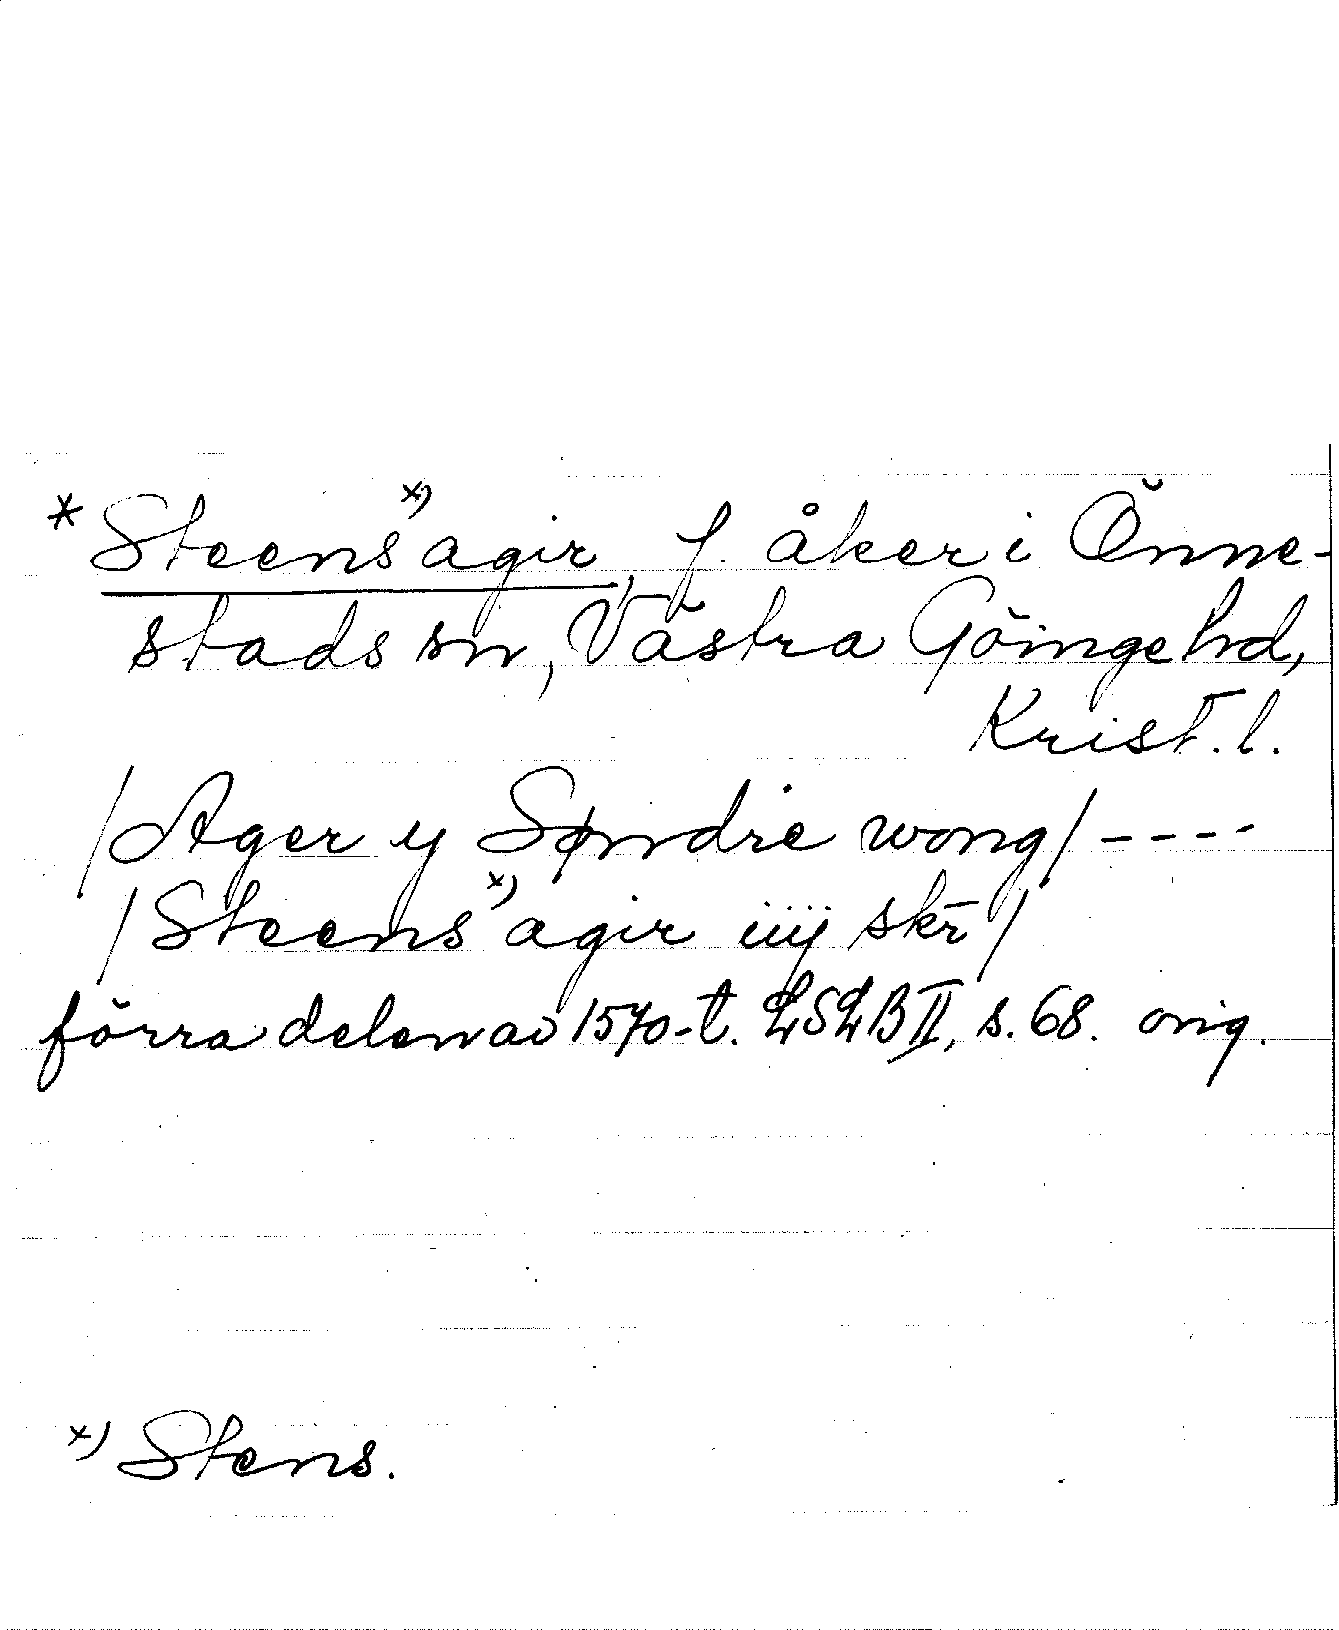 * Steens" x) agir, f. åker i Önne-
stads sn, Västra Göinge hd,
Krist. l.
/Ager y Søndre wong/ ----
/Steens" x) agir iiij skr̄/
förra delen av 1570-t. LSLB II, s. 68. orig.
x) Stens.